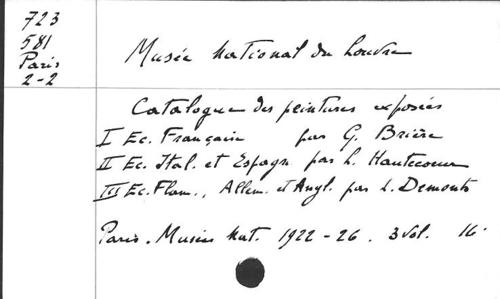 723
581
Paris
2-2
Musée National du Louvre
Catalogue des peintures exposées
I Ec. Française par G. Brière
II Ec. Ital. et Espagn par L. Hautecoeur
III Ec. Flam., Allem. et Angl. par L. Demonts
Paris. Musées Nat. 1922-26. 3 vol. 16°